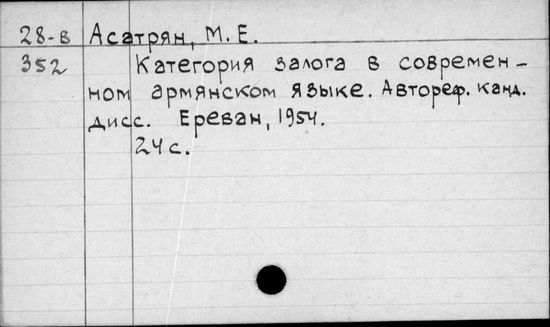 28-в Асатрян, М. Е.
352 Категория залога в современ-
ном армянском языке. Автореф. канд.
дисс. Ереван, 1954.
24 с.